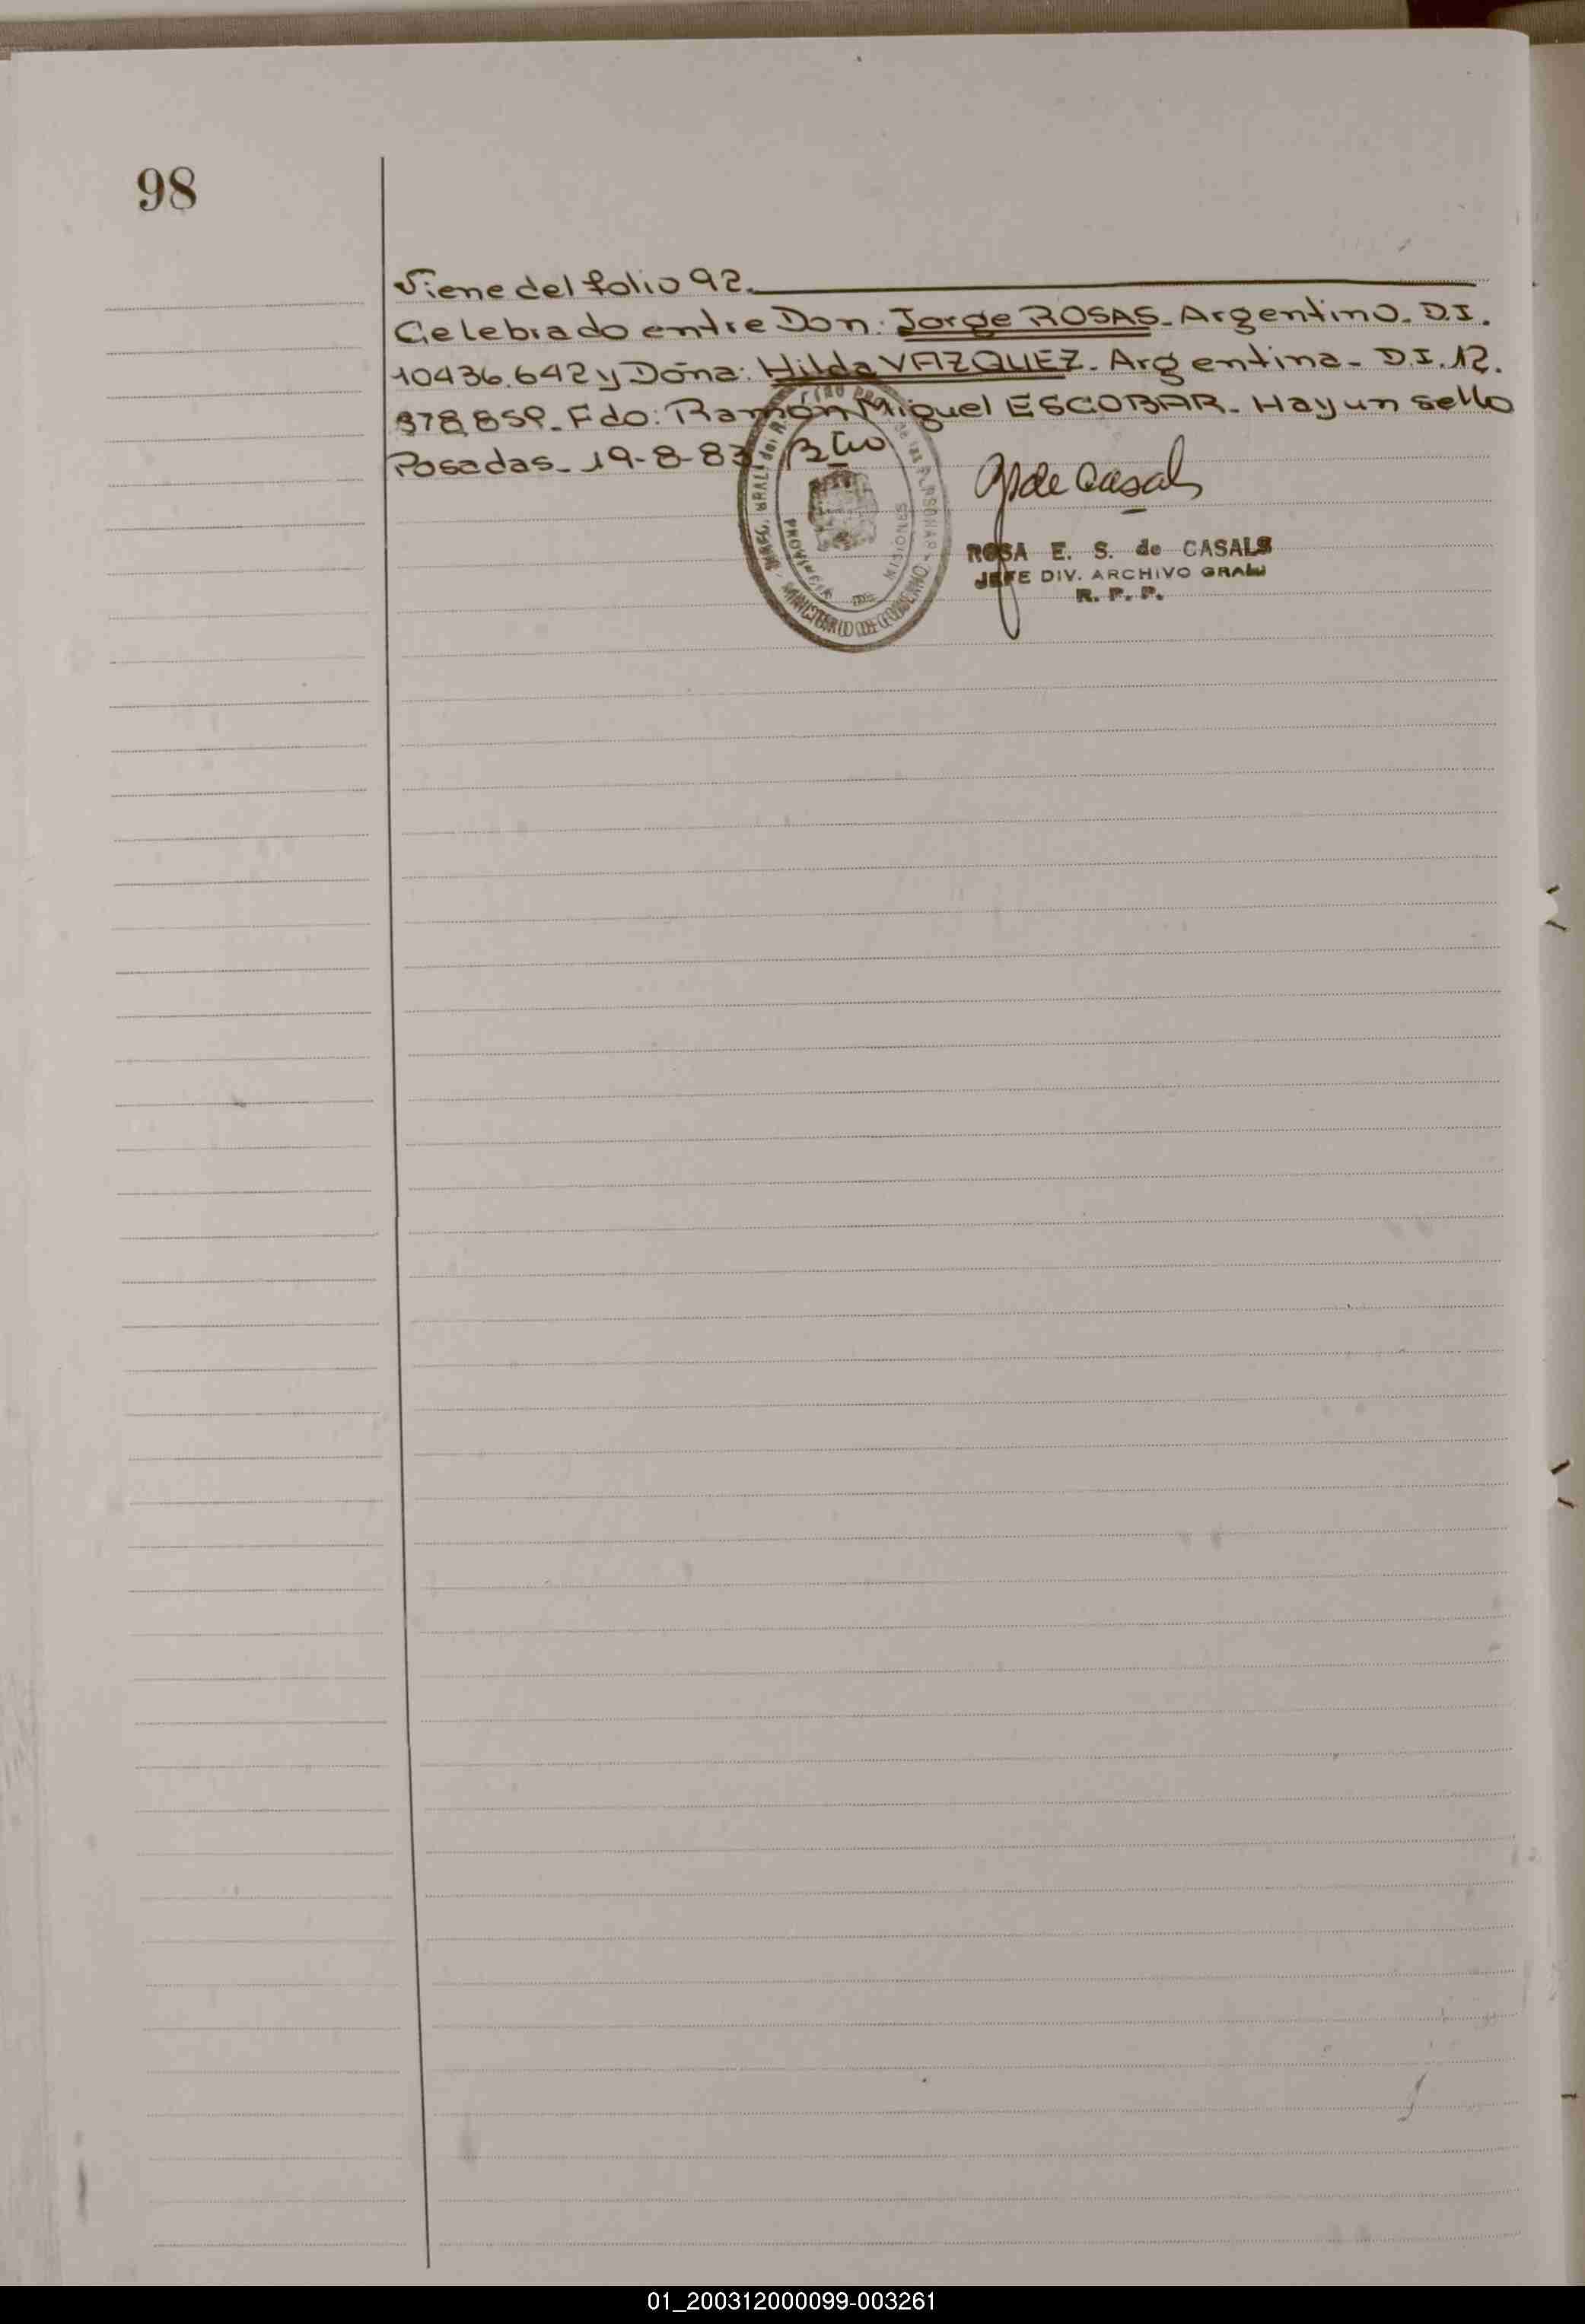 98
Viene del folio 92.
Celebrado entre Don: Jorge ROSAS. Argentino. D.I.
10436.642 y Doña: Hilda VAZQUEZ. Argentina. D.I. 12.
378.859. Fdo: Ramón Miguel ESCOBAR. Hay un sello
Posadas. 19-8-83
PROVINCIA DE MISIONES
MINISTERIO DE GOBIERNO
de Casals
ROSA E. S. de CASALS
JEFE DIV. ARCHIVO GRAL
R. P. P.
01_200312000099-003261